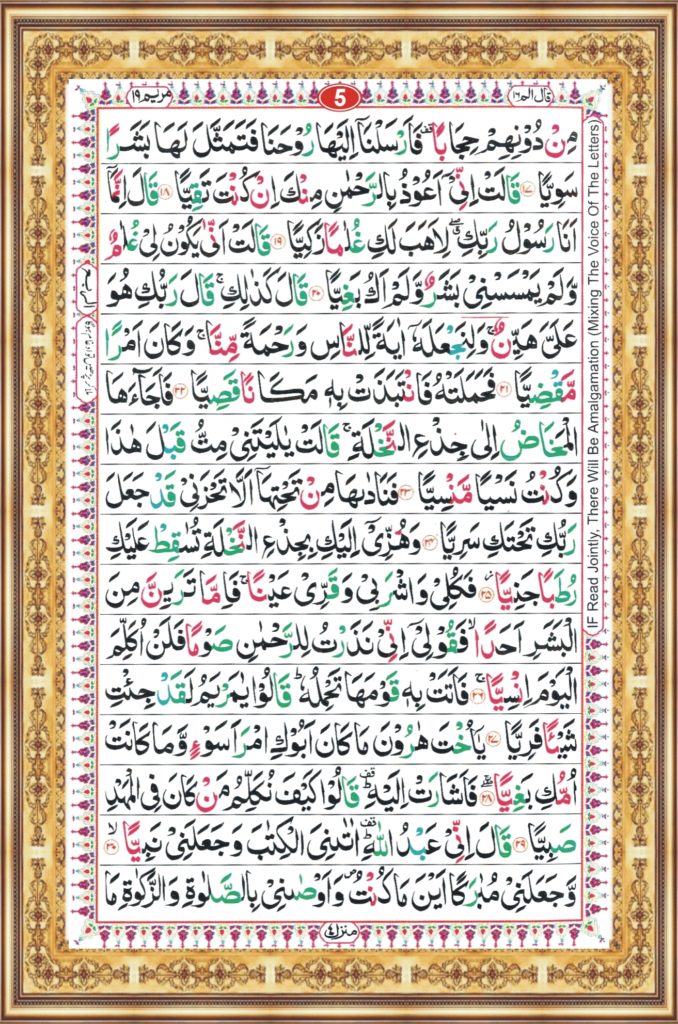 قال الم ۱۶
5
مریم ۱۹
مِنْ دُوْنِهِمْ حِجَابًا ۪۫ فَاَرْسَلْنَاۤ اِلَيْهَا رُوْحَنَا فَتَمَثَّلَ لَهَا بَشَرًا
سَوِيًّا ۝۱۷ قَالَتْ اِنِّيْۤ اَعُوْذُ بِالرَّحْمٰنِ مِنْكَ اِنْ كُنْتَ تَقِيًّا ۝۱۸ قَالَ اِنَّمَاۤ
اَنَا رَسُوْلُ رَبِّكِ ۖۗ لِاَهَبَ لَكِ غُلٰمًا زَكِيًّا ۝۱۹ قَالَتْ اَنّٰى يَكُوْنُ لِيْ غُلٰمٌ
وَّلَمْ يَمْسَسْنِيْ بَشَرٌ وَّلَمْ اَكُ بَغِيًّا ۝۲۰ قَالَ كَذٰلِكِ ۚ قَالَ رَبُّكِ هُوَ
عَلَيَّ هَيِّنٌ ۚ وَلِنَجْعَلَهٗۤ اٰيَةً لِّلنَّاسِ وَرَحْمَةً مِّنَّا ۚ وَكَانَ اَمْرًا
مَّقْضِيًّا ۝۲۱ فَحَمَلَتْهُ فَانْتَبَذَتْ بِهٖ مَكَانًا قَصِيًّا ۝۲۲ فَاَجَآءَهَا
الْمَخَاضُ اِلٰى جِذْعِ النَّخْلَةِ ۚ قَالَتْ يٰلَيْتَنِيْ مِتُّ قَبْلَ هٰذَا
وَكُنْتُ نَسْيًا مَّنْسِيًّا ۝۲۳ فَنَادٰىهَا مِنْ تَحْتِهَاۤ اَلَّا تَحْزَنِيْ قَدْ جَعَلَ
رَبُّكِ تَحْتَكِ سَرِيًّا ۝۲۴ وَهُزِّيْۤ اِلَيْكِ بِجِذْعِ النَّخْلَةِ تُسٰقِطْ عَلَيْكِ
رُطَبًا جَنِيًّا ۝۲۵ فَكُلِيْ وَاشْرَبِيْ وَقَرِّيْ عَيْنًا ۚ فَاِمَّا تَرَيِنَّ مِنَ
الْبَشَرِ اَحَدًا ۙ فَقُوْلِيْۤ اِنِّيْ نَذَرْتُ لِلرَّحْمٰنِ صَوْمًا فَلَنْ اُكَلِّمَ
الْيَوْمَ اِنْسِيًّا ۝۲۶ ۚ فَاَتَتْ بِهٖ قَوْمَهَا تَحْمِلُهٗ ؕ قَالُوْا يٰمَرْيَمُ لَقَدْ جِئْتِ
شَيْئًا فَرِيًّا ۝۲۷ يٰۤاُخْتَ هٰرُوْنَ مَا كَانَ اَبُوْكِ امْرَاَ سَوْءٍ وَّمَا كَانَتْ
اُمُّكِ بَغِيًّا ۝۲۸ ۖۚ فَاَشَارَتْ اِلَيْهِ ؕ۫ قَالُوْا كَيْفَ نُكَلِّمُ مَنْ كَانَ فِي الْمَهْدِ
صَبِيًّا ۝۲۹ قَالَ اِنِّيْ عَبْدُ اللّٰهِ ؕ۫ اٰتٰىنِيَ الْكِتٰبَ وَجَعَلَنِيْ نَبِيًّا ۝۳۰ ۙ
وَّجَعَلَنِيْ مُبٰرَكًا اَيْنَ مَا كُنْتُ ۪ وَاَوْصٰنِيْ بِالصَّلٰوةِ وَالزَّكٰوةِ مَا
منزل ٤
IF Read Jointly, There Will Be Amalgamation (Mixing The Voice Of The Letters)